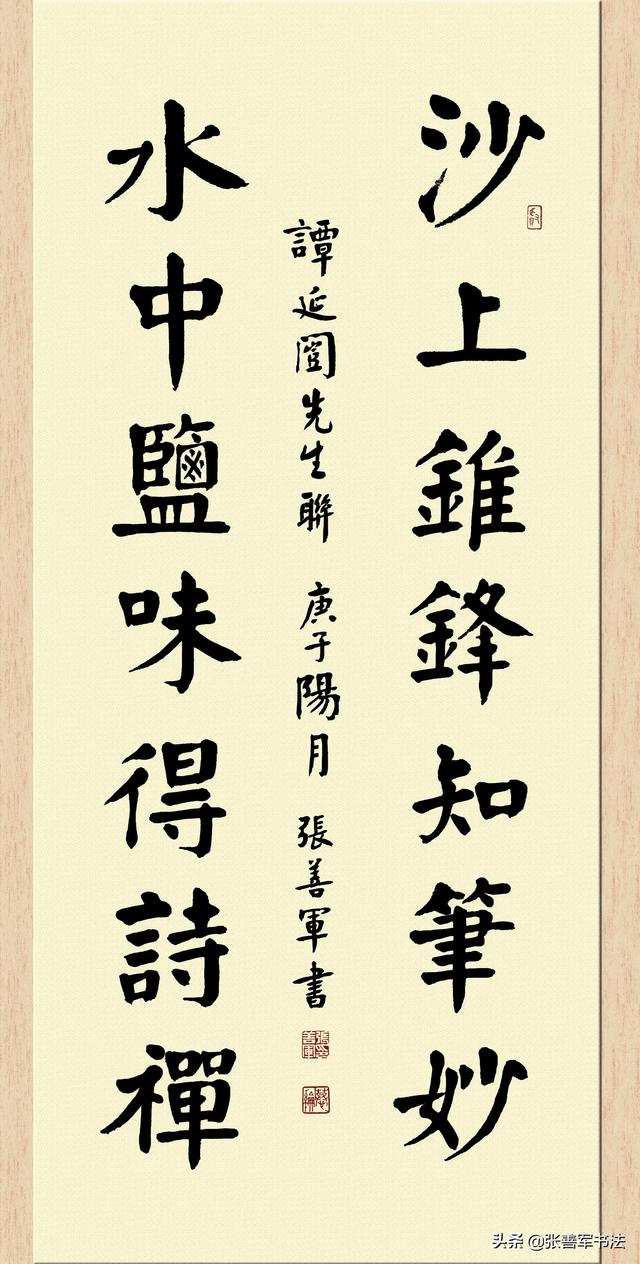 沙上錐鋒知筆妙
水中鹽味得詩禪
譚延闓先生聯 庚子陽月 張善軍書
头条 @张善军书法